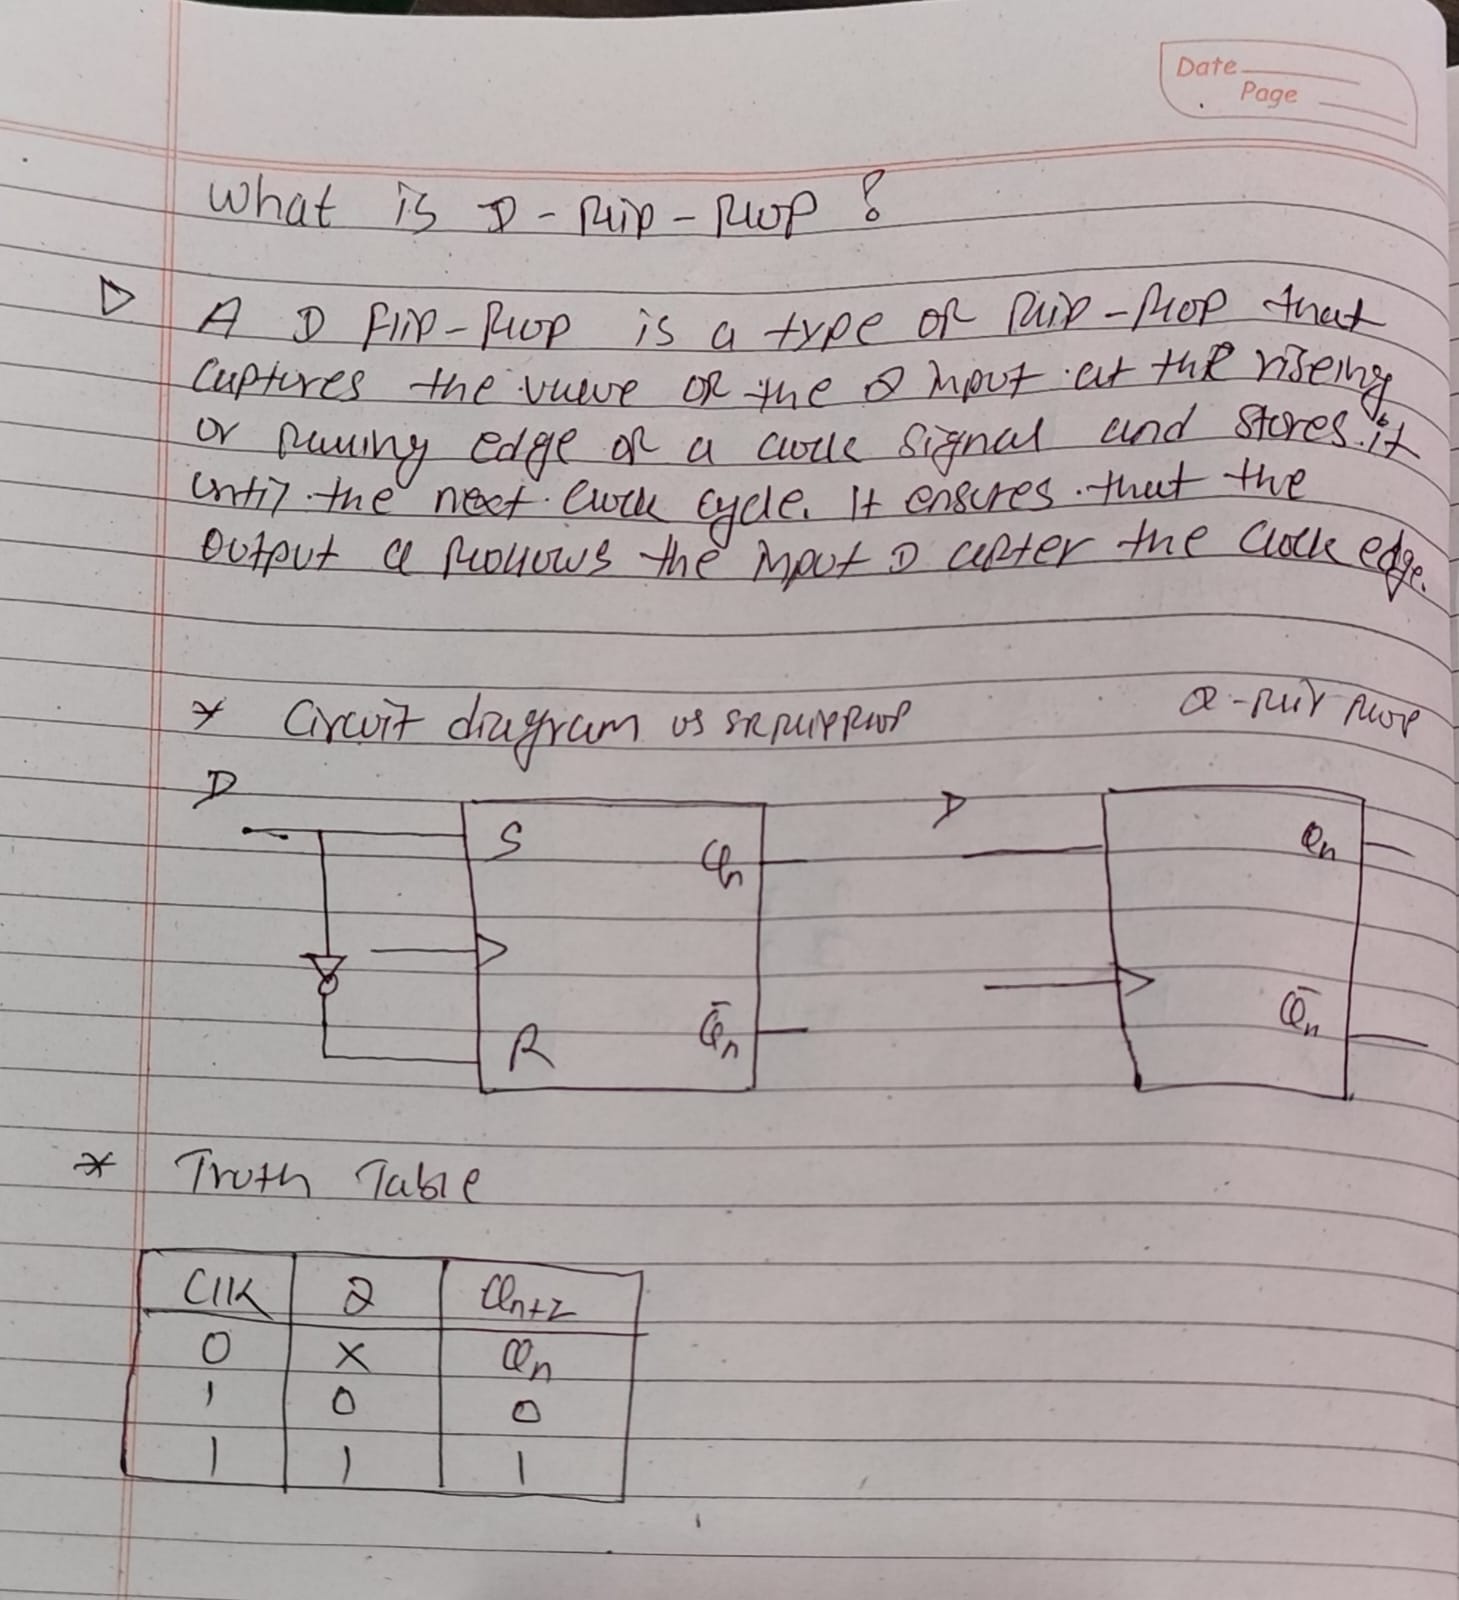 Date
Page
What is D-flip-flop ?
A D flip-flop is a type of flip-flop that
captures the value of the D input at the riseing
or falling edge of a clock signal and stores it
until the next clock cycle. It ensures that the
output Q follows the input D after the clock edge.
* Circuit diagram vs SR flipflop
D-flip flop
D
S
Qn
R
Q̄n
D
Qn
Q̄n
* Truth Table
Clk D Qn+1
0 x Qn
1 0 0
1 1 1